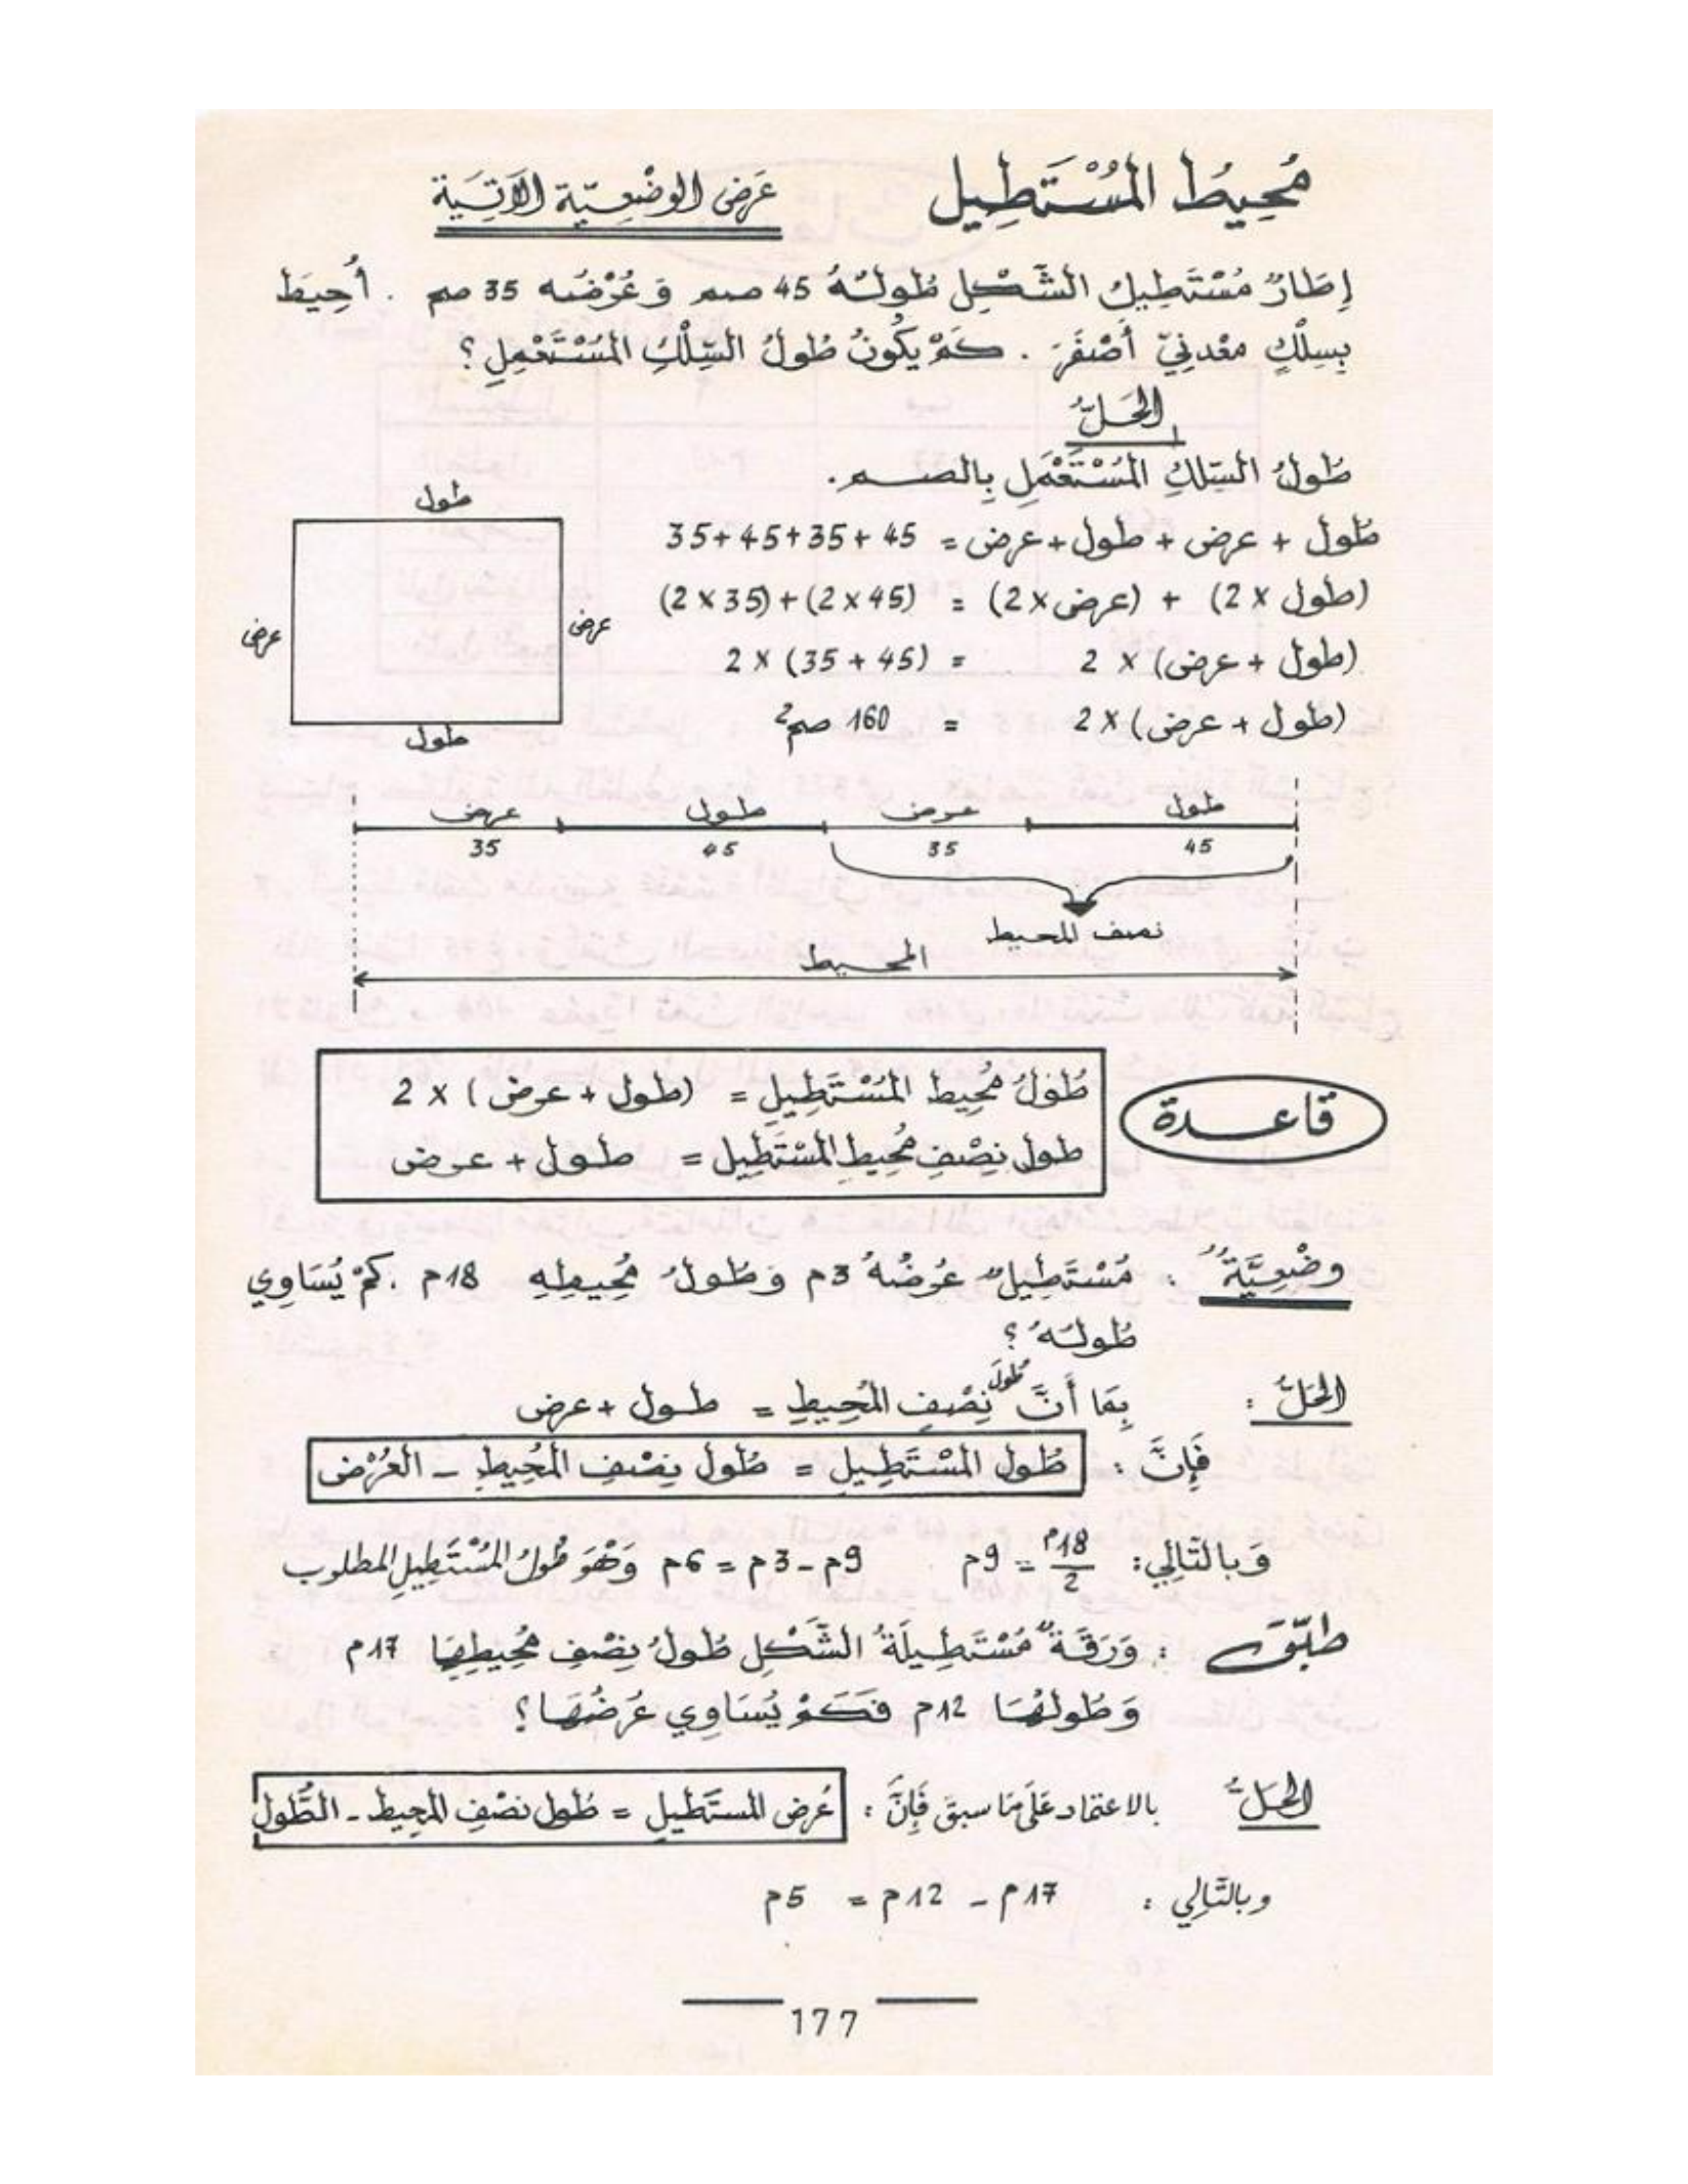 مُحِيطُ المُسْتَطِيل
عَرَض الوضْعِيّة الآتِيَة
إِطَارٌ مُسْتَطِيلُ الشَّكْلِ طُولُهُ 45 صم وَ عُرْضُه 35 صم . أُحِيطَ
بِسِلْكٍ معْدنِيّ أَصْفَرَ . كَمْ يكُونُ طُولُ السِّلْكِ المُسْتَعْمِلِ ؟
الحَلُّ
طُولُ السّلكِ المُسْتَعْمَلِ بِالصم .
طُول + عرض + طول + عرض = 45 + 35 + 45 + 35
(طول × 2) + (عرض × 2) = (45 × 2) + (35 × 2)
(طول + عرض) × 2 = (45 + 35) × 2
(طول + عرض) × 2 = 160 صم²
طول
عرض
عرض
طول
طول عرض طول عرض
45 35 45 35
نصف المحيط
المحيط
قاعدة
طُولُ مُحِيط المُسْتَطِيلِ = (طول + عرض) × 2
طول نِصْفِ مُحِيطِ المُسْتَطِيل = طول + عرض
وضْعِيَّةٌ : مُسْتَطِيلٌ عُرْضُهُ 3م وَطُولُ مُحِيطِهِ 18م . كَمْ يُسَاوِي
طُولُهُ ؟
الحَلُّ : بِمَا أَنَّ طُولَ نِصْفِ المُحِيطِ = طول + عرض
فَإِنَّ : طُول المُسْتَطِيلِ = طُول نِصْفِ المُحِيطِ - العُرْض
وَبالتّالِي : 18م/2 = 9م 9م - 3م = 6م وَهْوَ طُولُ المُسْتَطِيلِ المطلوب
طبّق : وَرَقَةٌ مُسْتَطِيلَةُ الشَّكْلِ طُولُ نِصْفِ مُحِيطِهَا 17م
وَطُولُهَا 12م فَكَمْ يُسَاوِي عُرْضُهَا ؟
الحَلُّ بالاعتماد عَلَى مَا سبقَ فَإِنَّ : عُرض المستَطيل = طُول نصْفِ المحِيط - الطُّول
وبالتّالِي : 17م - 12م = 5م
177